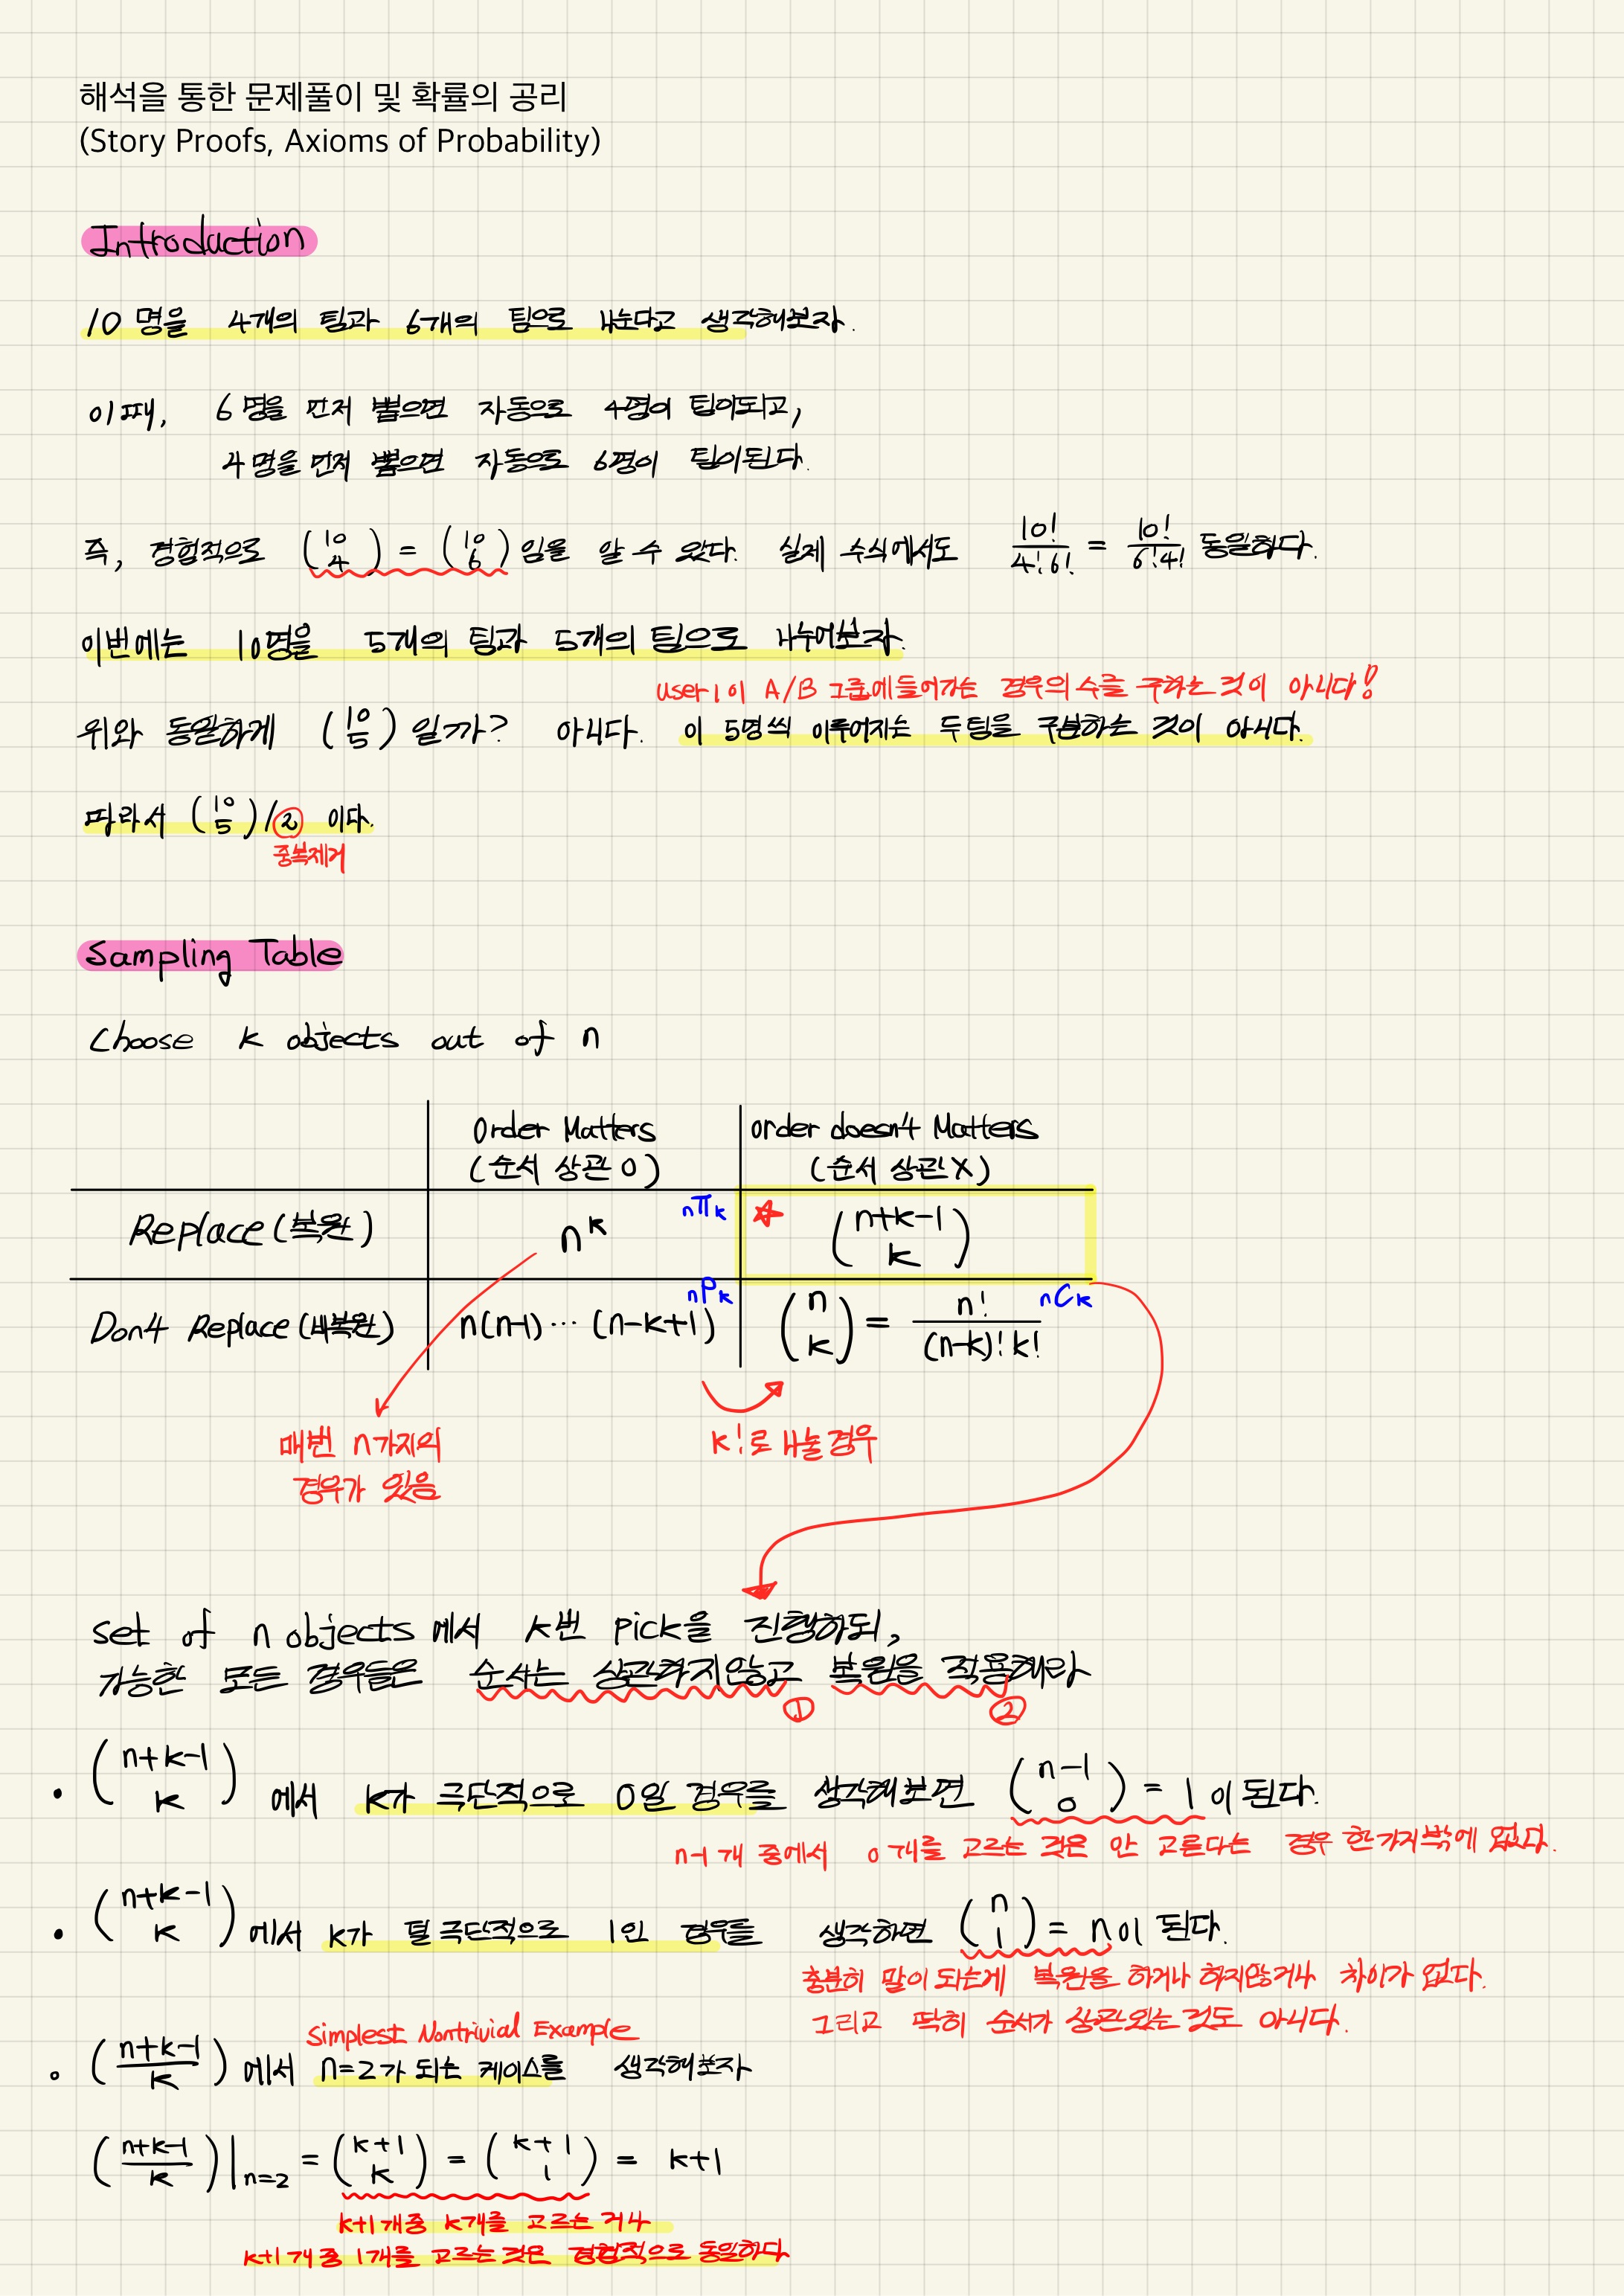 해석을 통한 문제풀이 및 확률의 공리
(Story Proofs, Axioms of Probability)
Introduction
10 명을 4개의 팀과 6개의 팀으로 나눈다고 생각해보자.
이때, 6 명을 먼저 뽑으면 자동으로 4명이 팀이되고,
4 명을 먼저 뽑으면 자동으로 6명이 팀이된다.
즉, 경험적으로 (10 4) = (10 6) 임을 알 수 있다. 실제 수식에서도 10!/4!6! = 10!/6!4! 동일하다.
이번에는 10명을 5개의 팀과 5개의 팀으로 나누어보자.
user1이 A/B 그룹에 들어가는 경우의 수를 구하는 것이 아니다!
위와 동일하게 (10 5) 일까? 아니다. 이 5명씩 이루어지는 두 팀을 구분하는 것이 아니다.
따라서 (10 5)/2 이다.
중복제거
Sampling Table
Choose k objects out of n
Order Matters order doesn4 Matters
(순서 상관 O) (순서 상관 X)
Replace (복원) n^k nΠk ☆ (n+k-1 k)
Don4 Replace (비복원) n(n-1) ... (n-k+1) nPk (n k) = n!/(n-k)!k! nCk
매번 n가지의
경우가 있음
k!로 나눌 경우
set of n objects 에서 k번 pick을 진행하되,
가능한 모든 경우들은 순서는 상관하지않고 복원을 적용해라
① ②
• (n+k-1 k) 에서 k가 극단적으로 0일 경우를 생각해보면 (n-1 0) = 1 이 된다.
n-1개 중에서 0개를 고르는 것은 안 고른다는 경우 한가지밖에 없다.
• (n+k-1 k) 에서 k가 덜 극단적으로 1인 경우를 생각하면 (n 1) = n이 된다.
충분히 말이 되는게 복원을 하거나 하지않거나 차이가 없다.
그리고 딱히 순서가 상관있는 것도 아니다.
Simplest Nontrivial Example
• (n+k-1/k) 에서 n=2가 되는 케이스를 생각해보자
(n+k-1/k)|n=2 = (k+1 k) = (k+1 1) = k+1
k+1개중 k개를 고르는 거나
k+1개 중 1개를 고르는 것은 경험적으로 동일하다